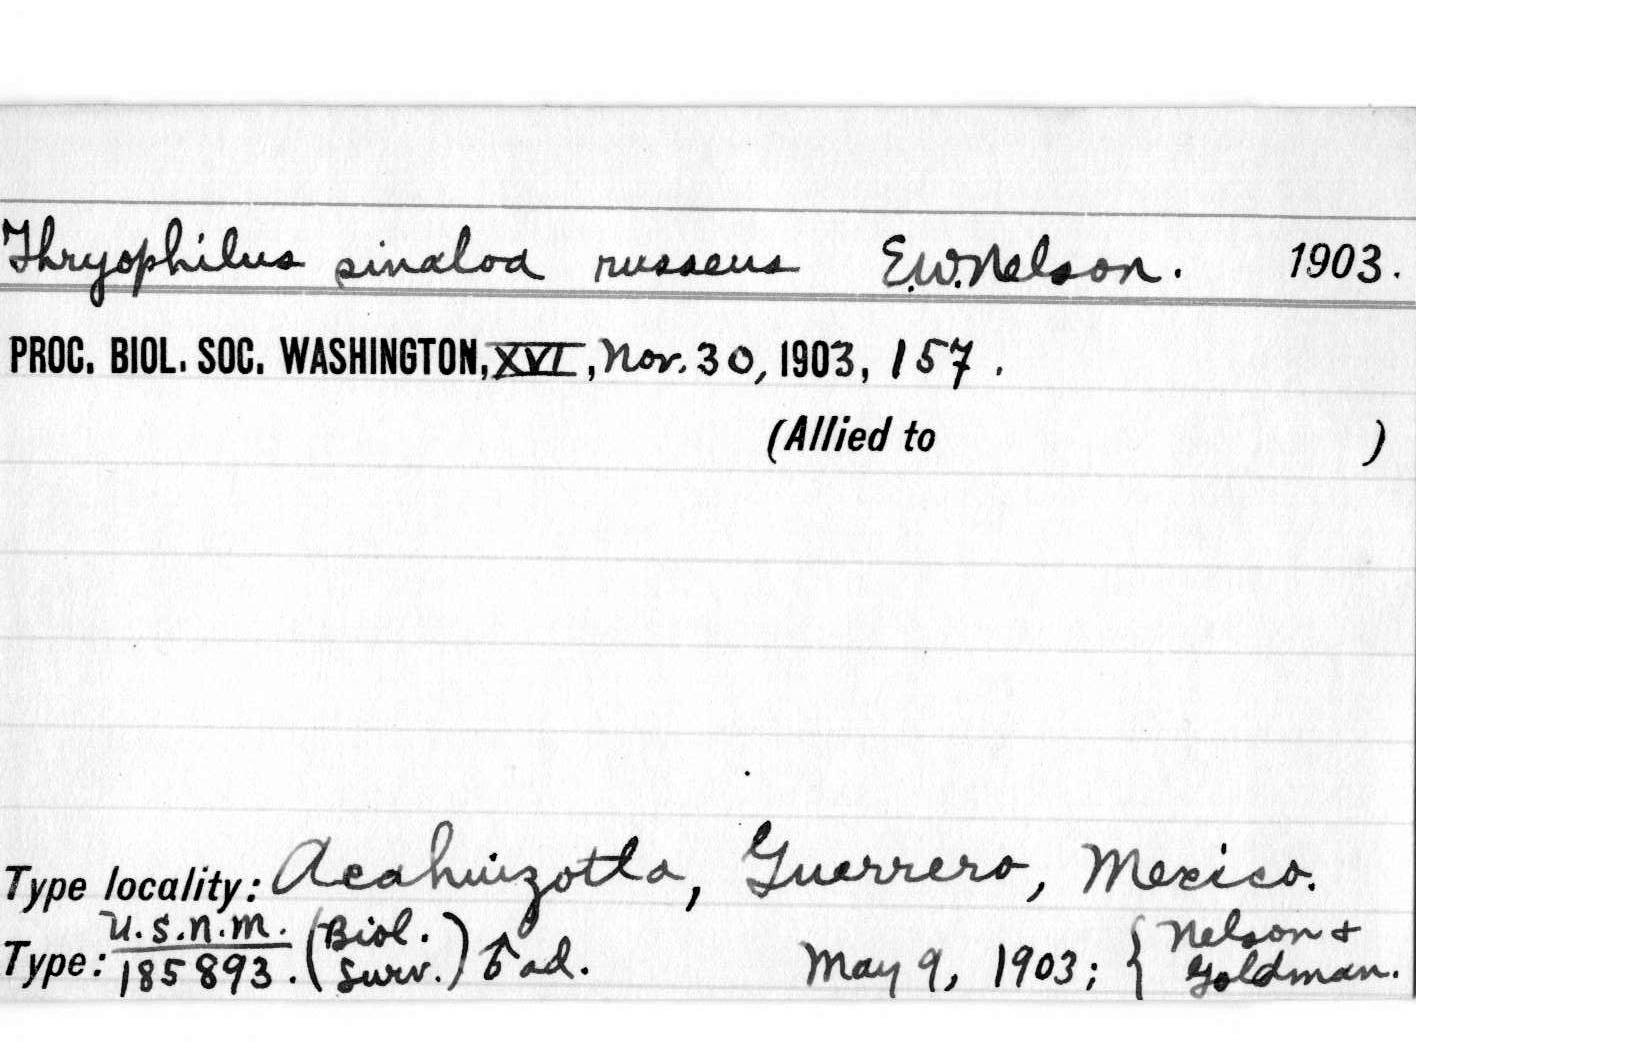 Thryophilus sinaloa russeus E.W. Nelson. 1903.
PROC. BIOL. SOC. WASHINGTON, XVI, Nov. 30, 1903, 157.
(Allied to )
Type locality: Acahuizotla, Guerrero, Mexico.
Type: U.S.N.M. 185893. (Biol. Surv.) ♂ ad. May 9, 1903; { Nelson + Goldman.